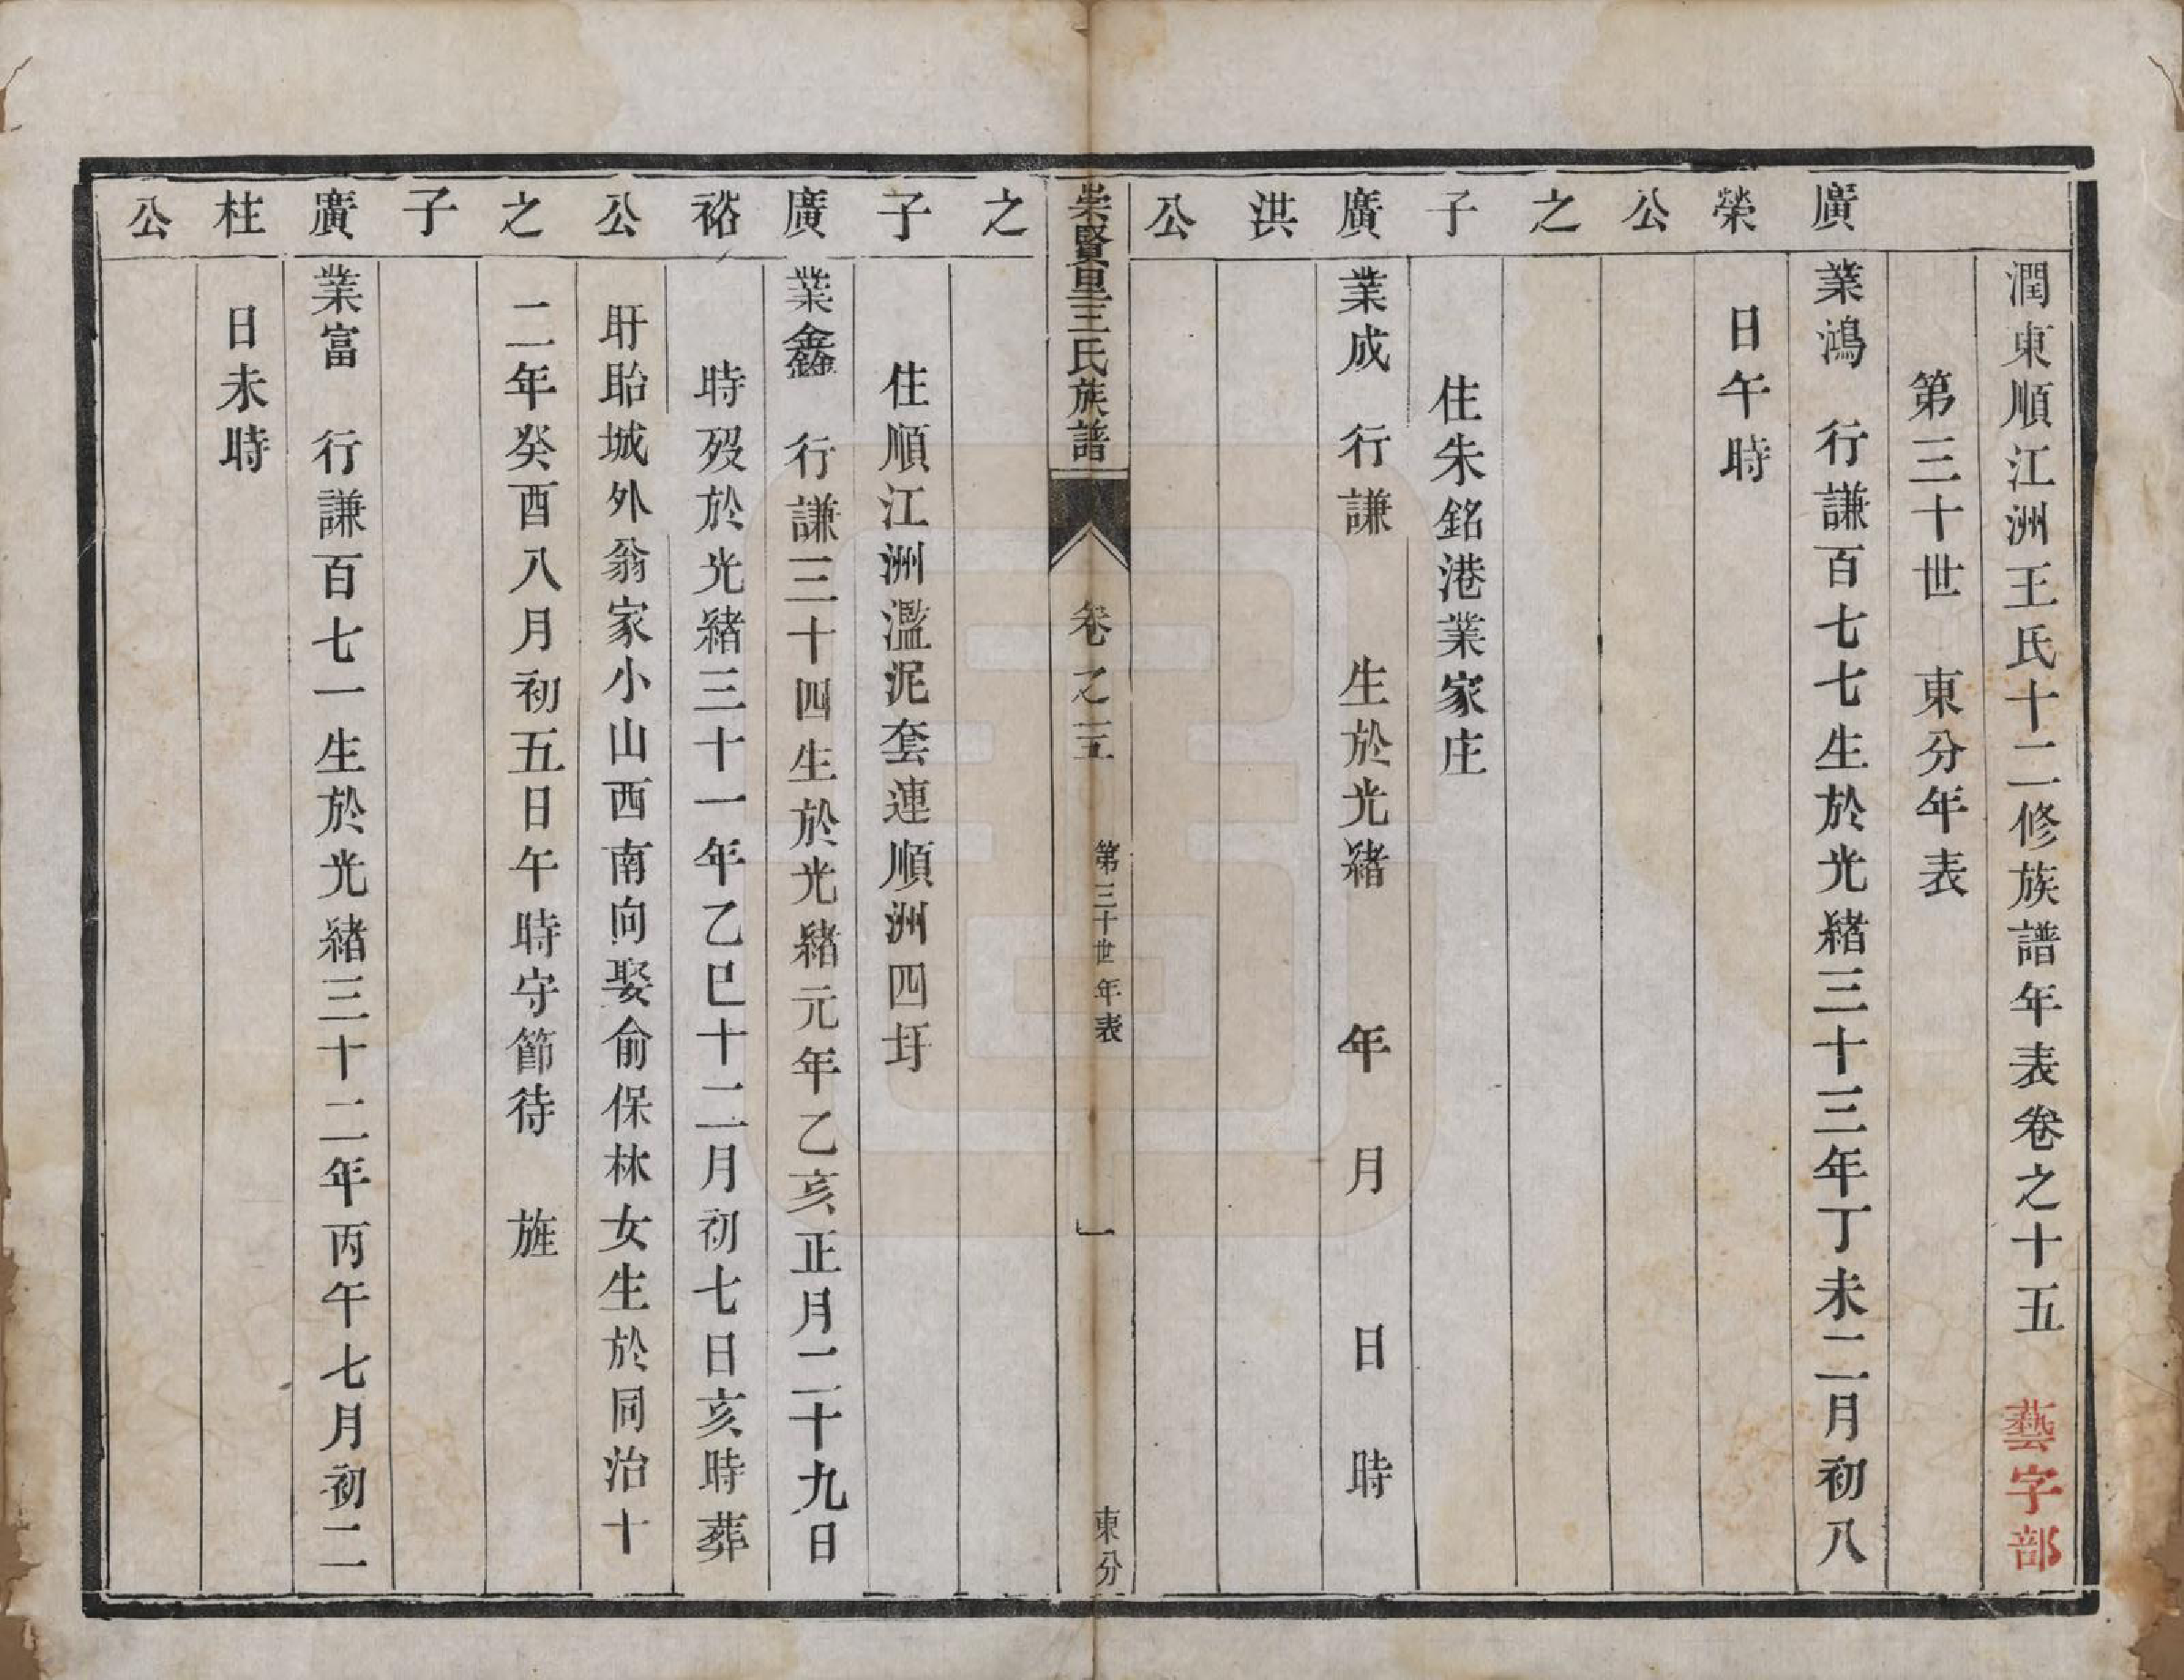 潤東順江洲王氏十二修族譜年表卷之十五 藝字部
第三十世 東分年表
廣 業鴻 行謙百七七生於光緒三十三年丁未二月初八
榮 日午時
公
之
子 住朱銘港業家庄
廣 業成 行謙 生於光緒 年 月 日 時
洪
公
崇賢里王氏族譜 卷之十五 第三十世年表 一 東分
之
子 住順江洲濫泥套連順洲四圩
廣 業鑫 行謙三十四生於光緒元年乙亥正月二十九日
裕 時歿於光緒三十一年乙巳十二月初七日亥時葬
公 盱眙城外翁家小山西南向娶俞保林女生於同治十
之 二年癸酉八月初五日午時守節待 旌
子
廣 業富 行謙百七一生於光緒三十二年丙午七月初二
柱 日未時
公